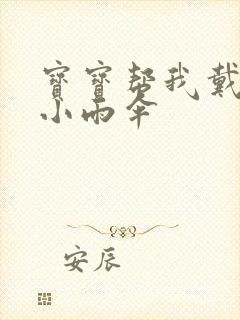 寶寶幫我戴
小雨傘
安辰